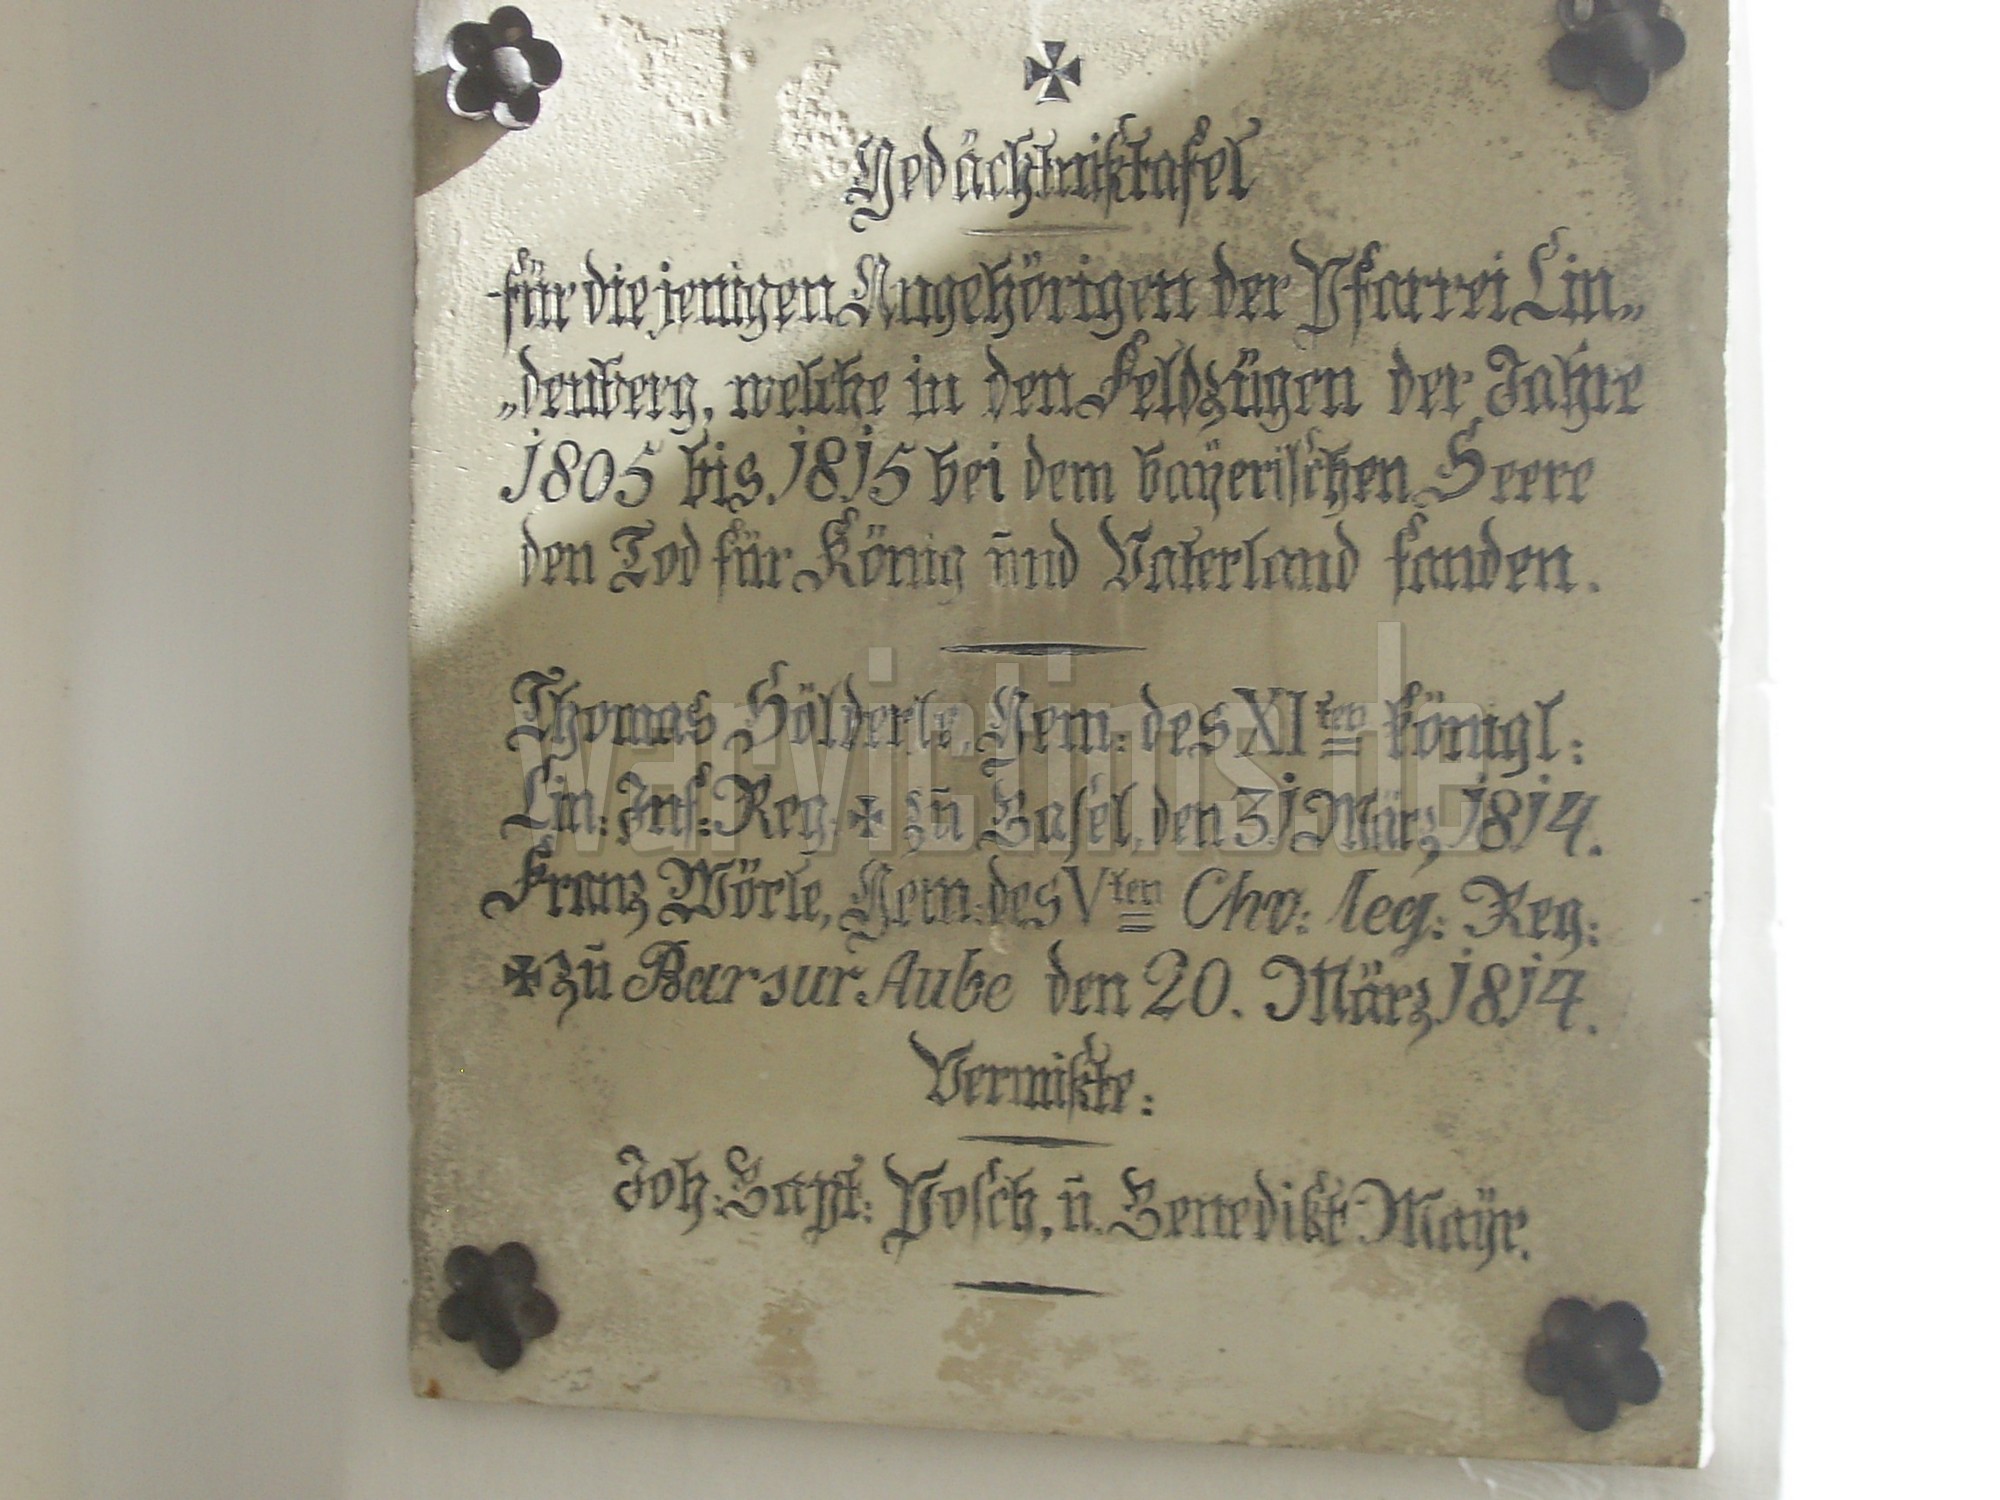 Gedächtnißtafel
für diejenigen Angehörigen der Pfarrei Lin„
„denberg, welche in den Feldzügen der Jahre
1805 bis 1815 bei dem bayerischen Heere
den Tod für König und Vaterland fanden.
Thomas Hölderle, Gem: des XI ten königl:
Lin: Inf: Reg. ✠ zu Basel, den 31 März 1814.
Franz Wörle, Gem: des V ten Chv: leg: Reg:
✠ zu Bar sur Aube den 20. März 1814.
Vermißte:
Joh: Bapt: Posch, u. Benedikt Mayr.
warvictims.de